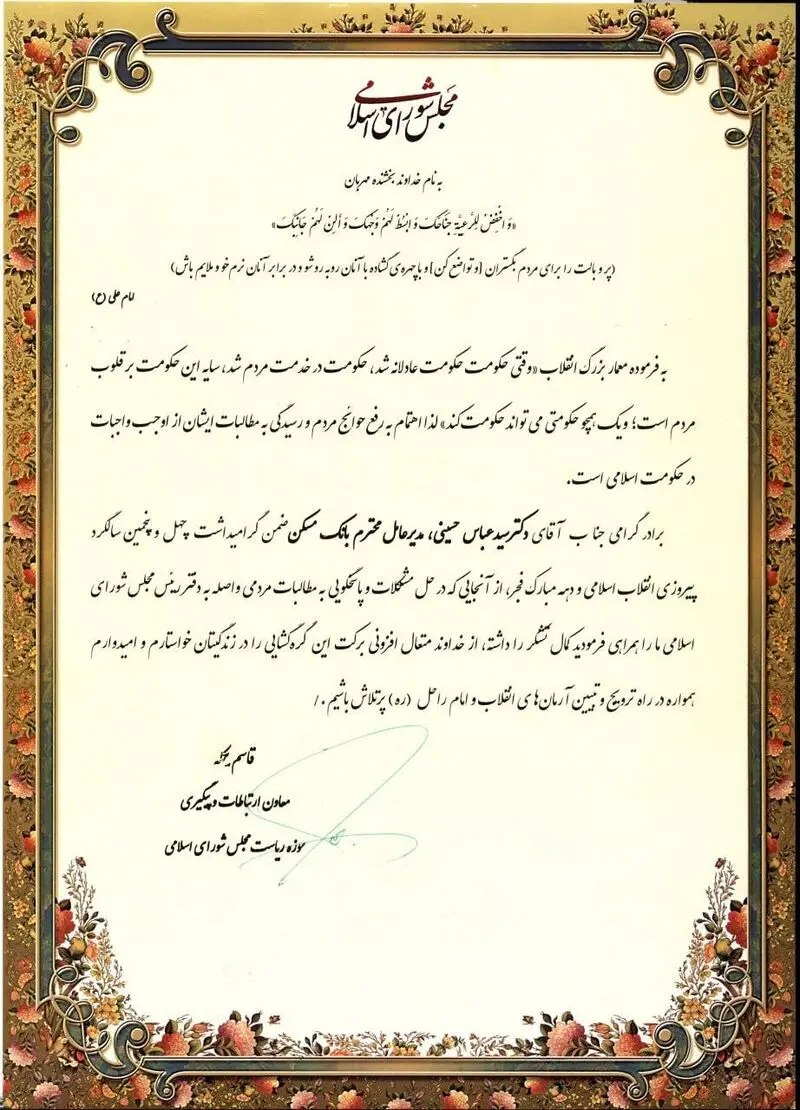 مجلس شورای اسلامی
به نام خداوند بخشنده مهربان
«وَ اخْفِضْ لِلرَّعِیَّةِ جَنَاحَکَ وَ ابْسُطْ لَهُمْ وَجْهَکَ وَ أَلِنْ لَهُمْ جَانِبَکَ»
(پر و بالت را برای مردم بگستران [و تواضع کن] و با چهره‌ی گشاده با آنان روبه رو شو و در برابر آنان نرم خو و ملایم باش)
امام علی (ع)
به فرموده معمار بزرگ انقلاب «وقتی حکومت حکومت عادلانه شد، حکومت در خدمت مردم شد، سایه این حکومت بر قلوب
مردم است؛ و یک همچو حکومتی می تواند حکومت کند» لذا اهتمام به رفع حوائج مردم و رسیدگی به مطالبات ایشان از اوجب واجبات
در حکومت اسلامی است.
برادر گرامی جناب آقای دکتر سید عباس حسینی، مدیرعامل محترم بانک مسکن ضمن گرامیداشت چهل و پنجمین سالگرد
پیروزی انقلاب اسلامی و دهه مبارک فجر، از آنجایی که در حل مشکلات و پاسخگویی به مطالبات مردمی واصله به دفتر رئیس مجلس شورای
اسلامی ما را همراهی فرمودید کمال تشکر را داشته، از خداوند متعال افزونی برکت این گره گشایی را در زندگیتان خواستارم و امیدوارم
همواره در راه ترویج و تبیین آرمان‌های انقلاب و امام راحل (ره) پرتلاش باشیم. /
قاسم
معاون ارتباطات و پیگیری
حوزه ریاست مجلس شورای اسلامی